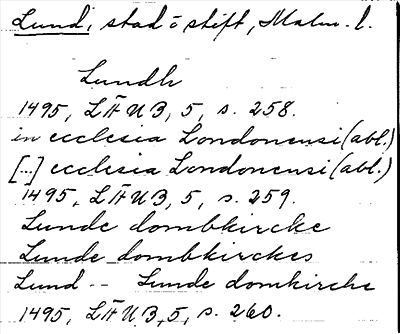 Lund, stad o stift, Malm. l.
Lundh
1495, LÄUB, 5, s. 258.
in ecclesia Londonensi (abl.)
[...] ecclesia Londonensi (abl.)
1495, LÄUB, 5, s. 259.
Lunde dombkircke
Lunde dombkirckes
Lund -- Lunde domkircke
1495, LÄUB, 5, s. 260.